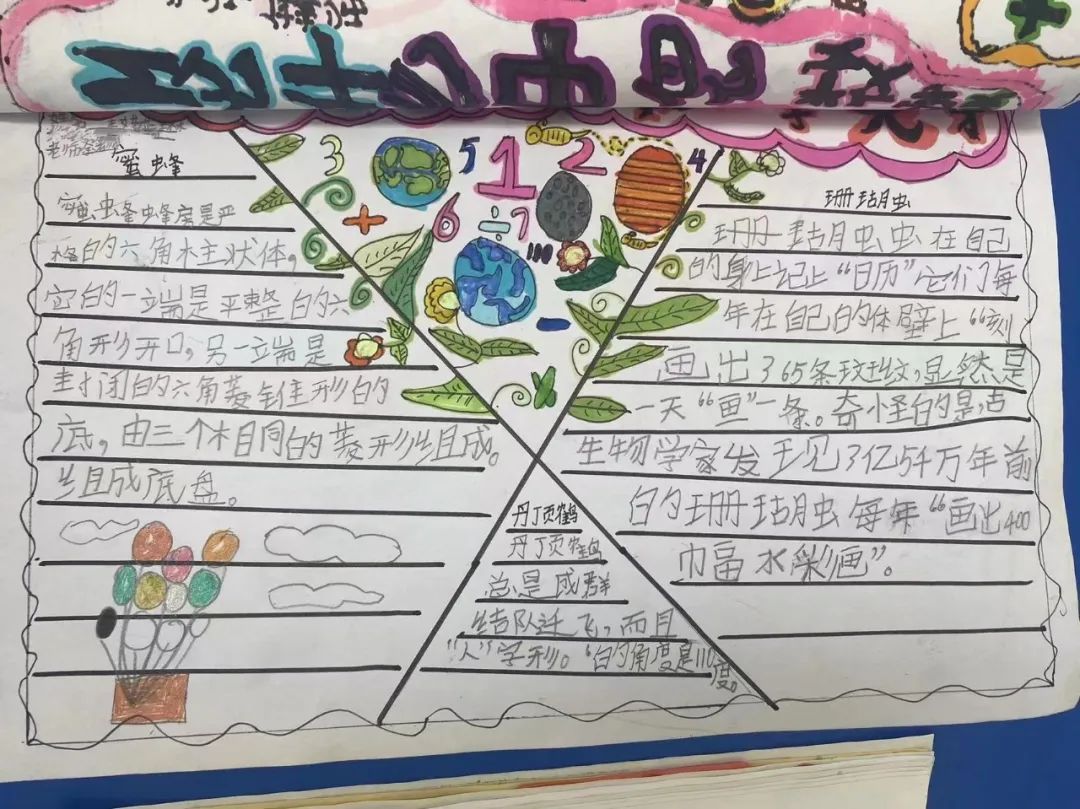 蜜蜂
蜜蜂蜂房是严
格的六角柱状体,
它的一端是平整的六
角形开口,另一端是
封闭的六角菱锥形的
底,由三个相同的菱形组成。
组成底盘。
3
5
1
2
4
+
6
÷
7
-
珊瑚虫
珊瑚虫虫在自己
的身上记上“日历”它们每
年在自己的体壁上“刻
画出365条斑纹,显然是
一天“画”一条。奇怪的是,古
生物学家发现3亿54万年前
的珊瑚虫每年“画出400
巾福水彩画”。
丹顶鹤
丹丁顶鹤
总是成群
结队迁飞,而且
“人”字形。“的角度是110
度。